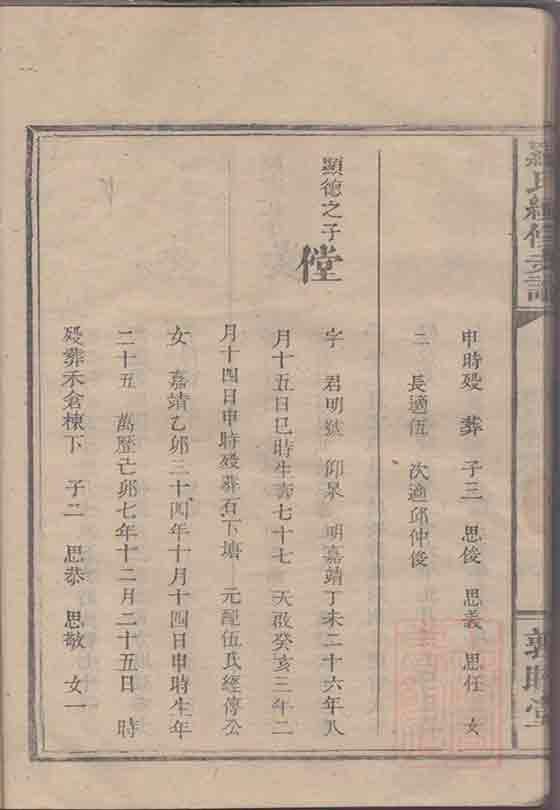 羅氏經修支譜
敦睦堂
申時歿　葬　子三　思俊　思義　思任　女
二　長適伍　次適邱仲俊
顯德之子
儻
字　君明號　仰泉　明嘉靖丁未二十六年八
月十五日巳時生壽七十七　天啟癸亥三年二
月十四日申時歿葬石下塘　元配伍氏經傳公
女　嘉靖乙卯三十四年十月十四日申時生年
二十五　萬歷己卯七年十二月二十五日　時
歿葬禾倉棟下　子二　思恭　思敬　女一